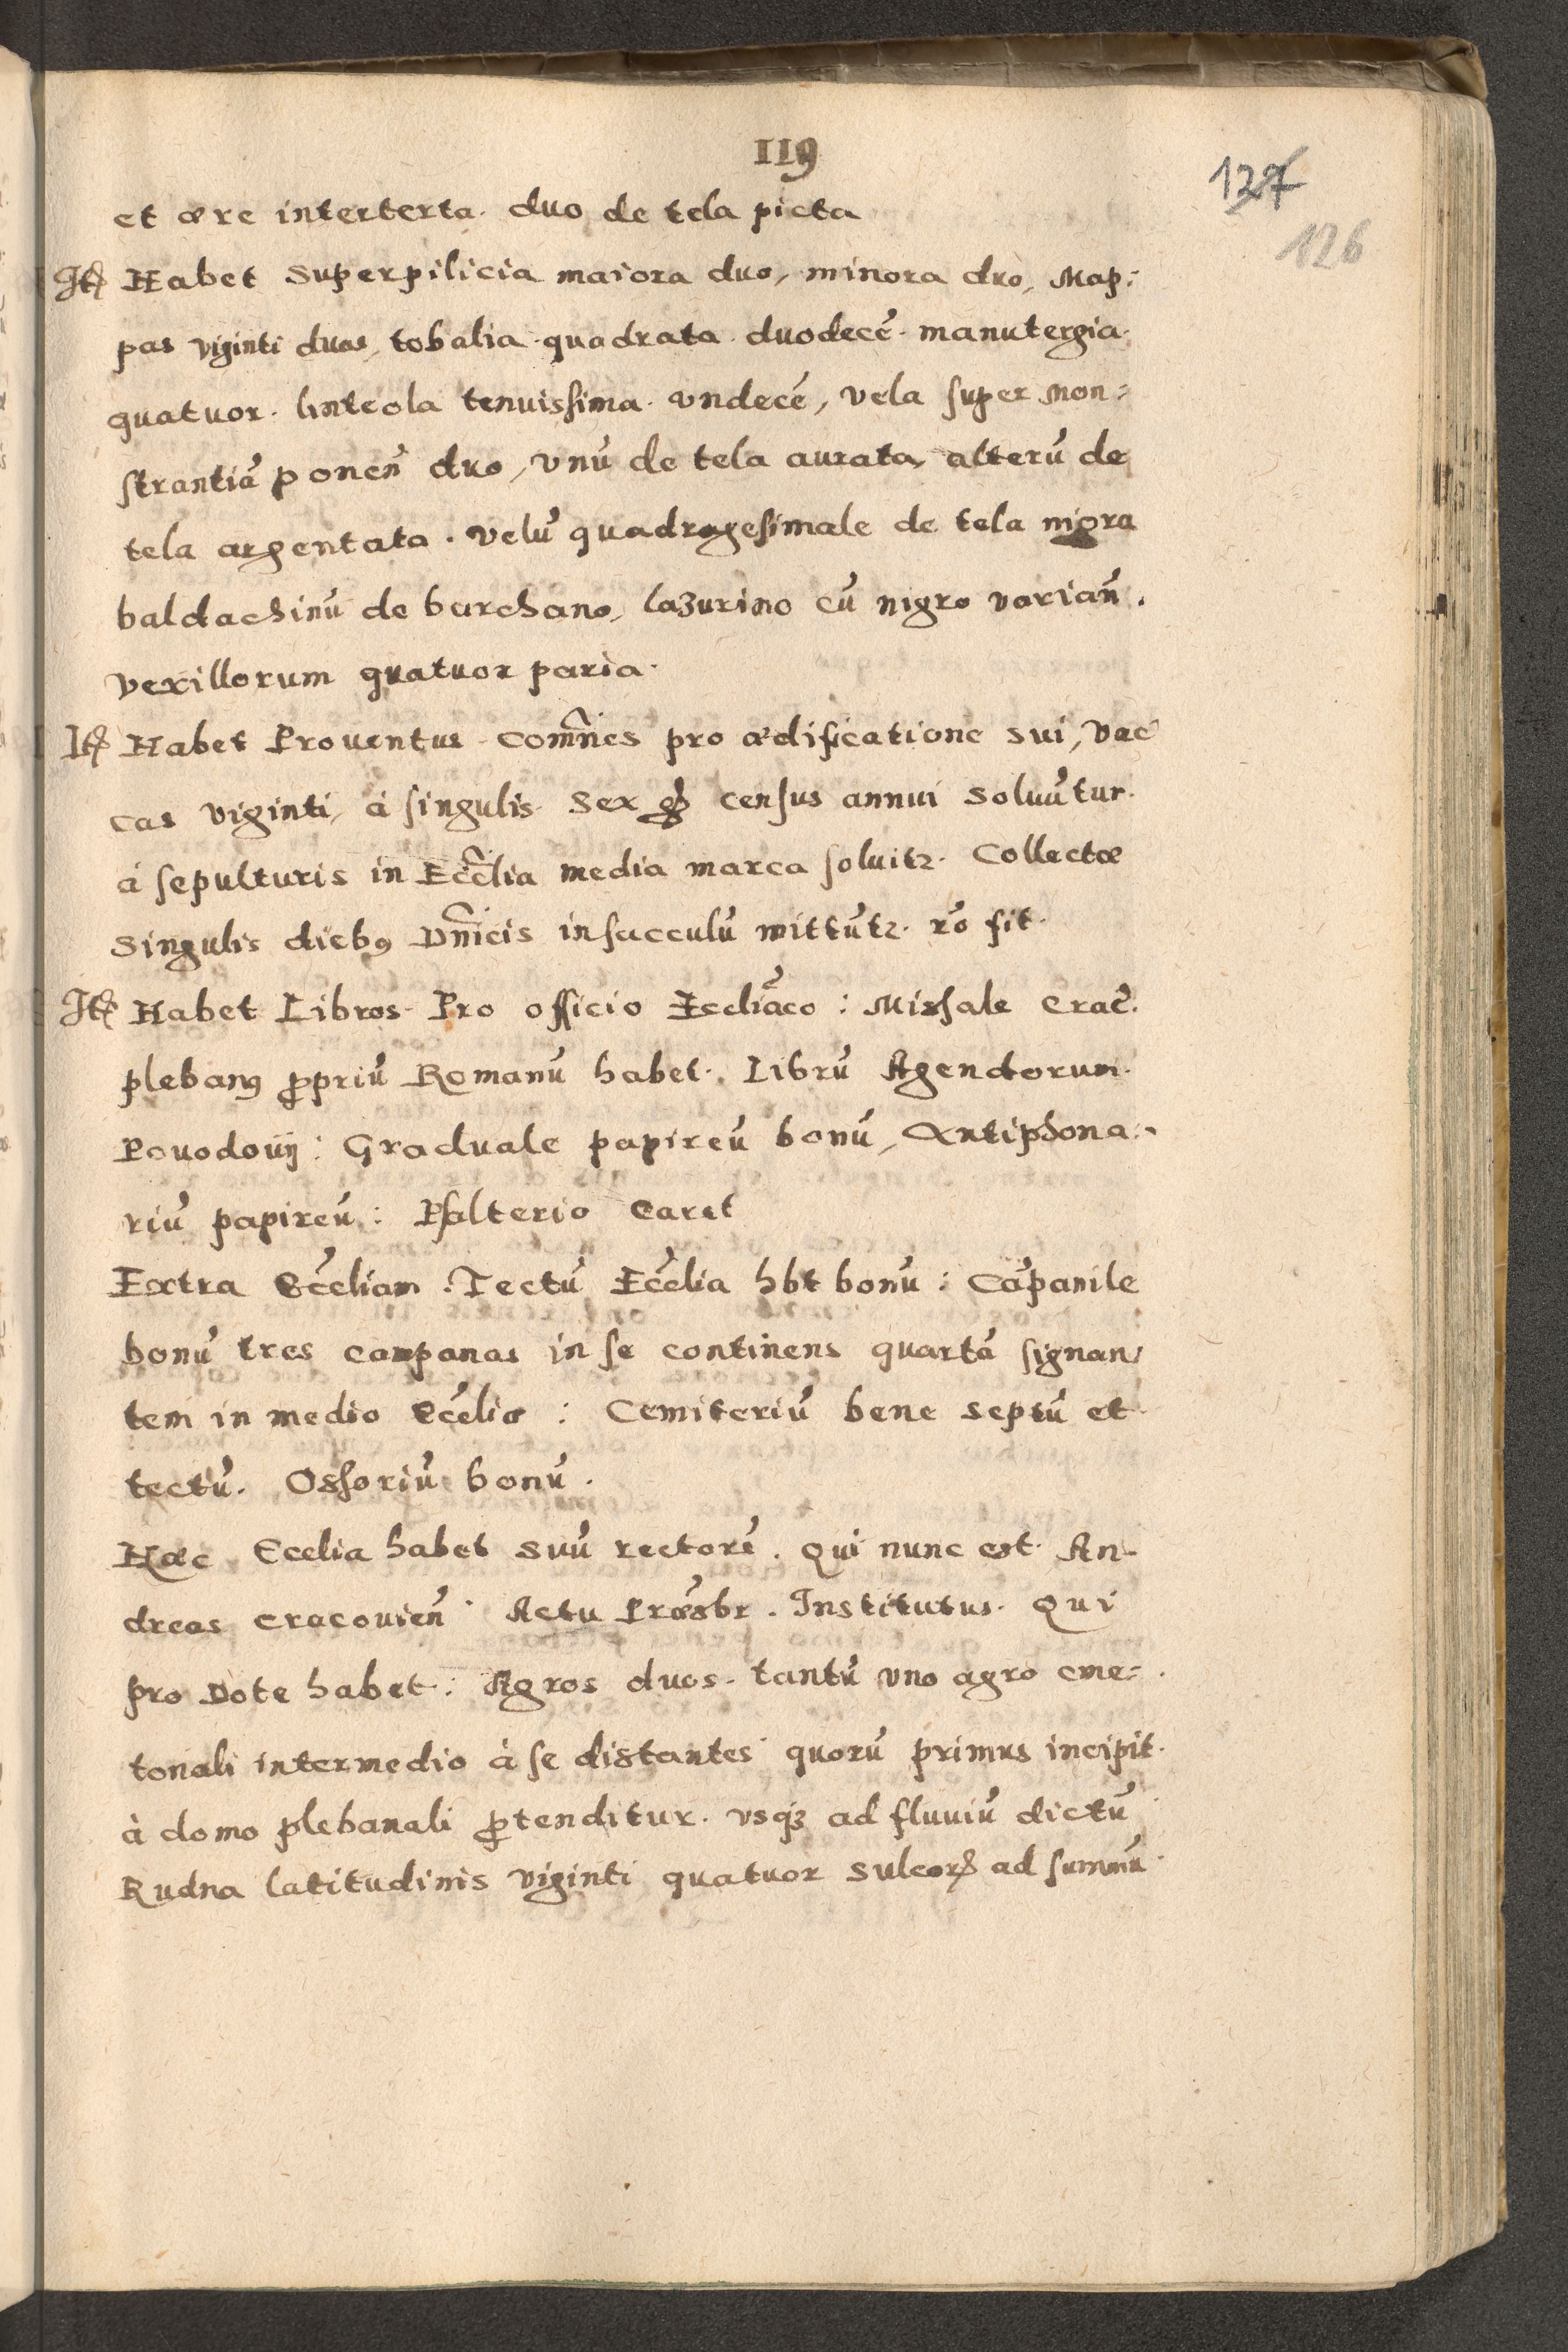 119
127
126
et ære intertexta. duo de tela picta
Itꝫ Habet Superpilicia maiora duo, minora duo, Map:
pas viginti duas, tobalia quadrata duodecẽ. manutergia
quatuor. linteola tenuissima. vndecẽ, vela super mon=
strantiã ponen̄ duo, vnũ de tela aurata, alterũ de
tela argentata. velũ quadragesimale de tela nigra
baldachinũ de barchano, lazurino cũ nigro varian̄.
vexillorum quatuor paria.
Itꝫ Habet Prouentus com̃nes pro ædificatione sui, vac
cas viginti, à singulis. Sex gꝭ census annui soluũtur.
à sepulturis in Ecc̃lia media marca soluitꝛ. Collectæ
singulis diebꝯ Dñicis in sacculũ mittũtꝛ. rõ fit.
Itꝫ Habet Libros Pro officio Eccliãco: Missale Crac̃.
plebanꝯ ꝓpriũ Romanũ habet. Librũ Agendorum
Pouodouij: Graduale papireũ bonũ, Antiphona:
riũ papireũ: Psalterio caret
Extra Ecc̃liam. Tectũ Ecc̃lia hbt bonũ: Cãpanile
bonũ tres campanas in se continens quartã signan,
tem in medio Ecc̃liæ: Cemiteriũ bene septũ et
tectũ. Ossoriũ bonũ.
Hæc Ecclia habet suũ rectorẽ. Qui nunc est. An-
dreas Cracouien̄ Actu Præ̃sbr. Institutus. Qui
pro Dote habet: Agros duos. tantũ vno agro cme=
tonali intermedio à se distantes quorũ primus incipit.
à domo plebanali ꝓtenditur. vsqꝫ ad fluuiũ dictũ
Rudna latitudinis viginti quatuor sulcorꝝ ad summũ